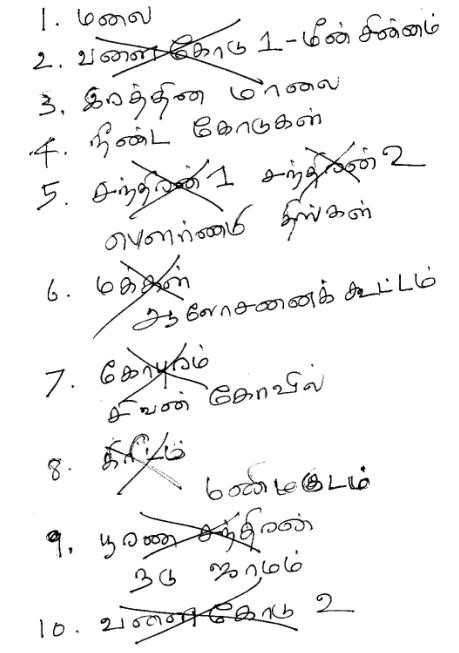 1. மலை
2. வளை கோடு 1 - மீன் சின்னம்
3. இரத்தின மாலை
4. நீண்ட கோடுகள்
5. சந்திரன் 1 சந்திரன் 2
பௌர்ணமி திங்கள்
6. மக்கள்
ஆலோசனைக் கூட்டம்
7. கோபுரம்
சிவன் கோவில்
8. கிரீடம்
மணிமகுடம்
9. பூரண சந்திரன்
நடு ஜாமம்
10. வளை கோடு 2